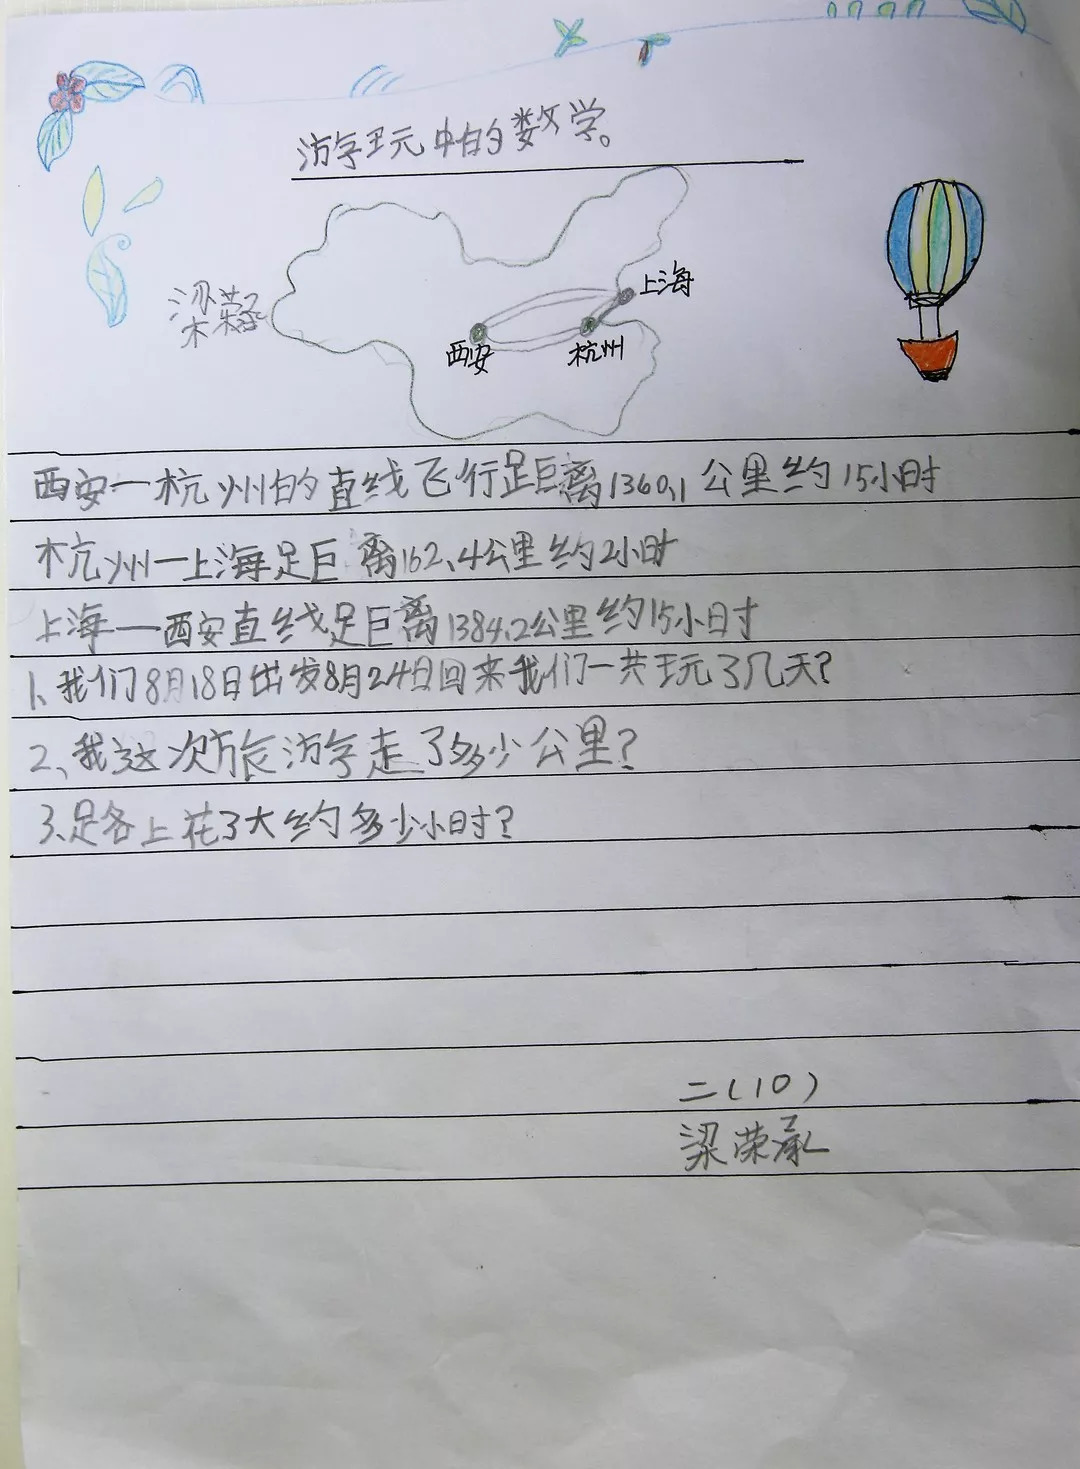 游玩中的数学。
梁荣承
上海
西安
杭州
西安一杭州的直线飞行距离1360.1公里约15小时
杭州一上海距离162.4公里约2小时
上海一西安直线距离1384.2公里约15小时
1、我们8月18日出发8月24日回来我们一共玩了几天?
2、我这次旅游走了多少公里?
3、路上花了大约多少小时?
二(10)
梁荣承